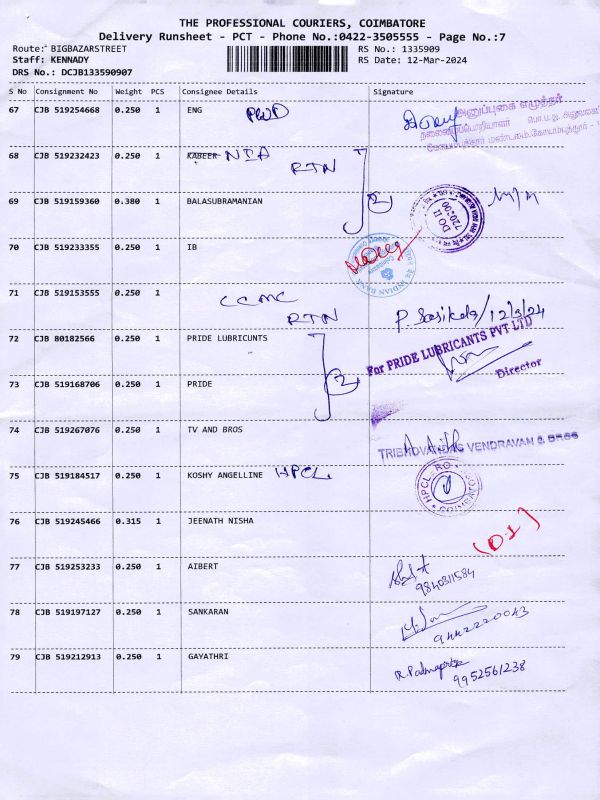 THE PROFESSIONAL COURIERS, COIMBATORE
Delivery Runsheet - PCT - Phone No.:0422-3505555 - Page No.:7
Route: BIGBAZARSTREET RS No.: 1335909
Staff: KENNADY RS Date: 12-Mar-2024
DRS No.: DCJB133590907
S No Consignment No Weight PCS Consignee Details Signature
67 CJB 519254668 0.250 1 ENG PWD
அனுப்புகை எழுத்தர்
68 CJB 519232423 0.250 1 KABEER NIA
RTN
69 CJB 519159360 0.380 1 BALASUBRAMANIAN
2
70 CJB 519233355 0.250 1 IB
INDIAN BANK
71 CJB 519153555 0.250 1 CCMC
RTN P. Sasikala/12/3/24
72 CJB 80182566 0.250 1 PRIDE LUBRICUNTS
For PRIDE LUBRICANTS PVT LTD
Director
73 CJB 519168706 0.250 1 PRIDE
2
74 CJB 519267076 0.250 1 TV AND BROS
VENDRAVAN & BROS
75 CJB 519184517 0.250 1 KOSHY ANGELLINE HPCL
HPCL-RO
76 CJB 519245466 0.315 1 JEENATH NISHA
(D.L)
77 CJB 519253233 0.250 1 AIBERT
9840311584
78 CJB 519197127 0.250 1 SANKARAN
9442220043
79 CJB 519212913 0.250 1 GAYATHRI
R. Padmapriya
9952561238